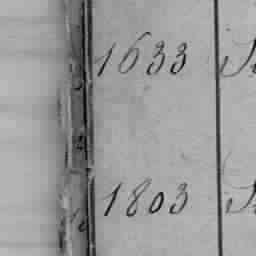 1633
1803